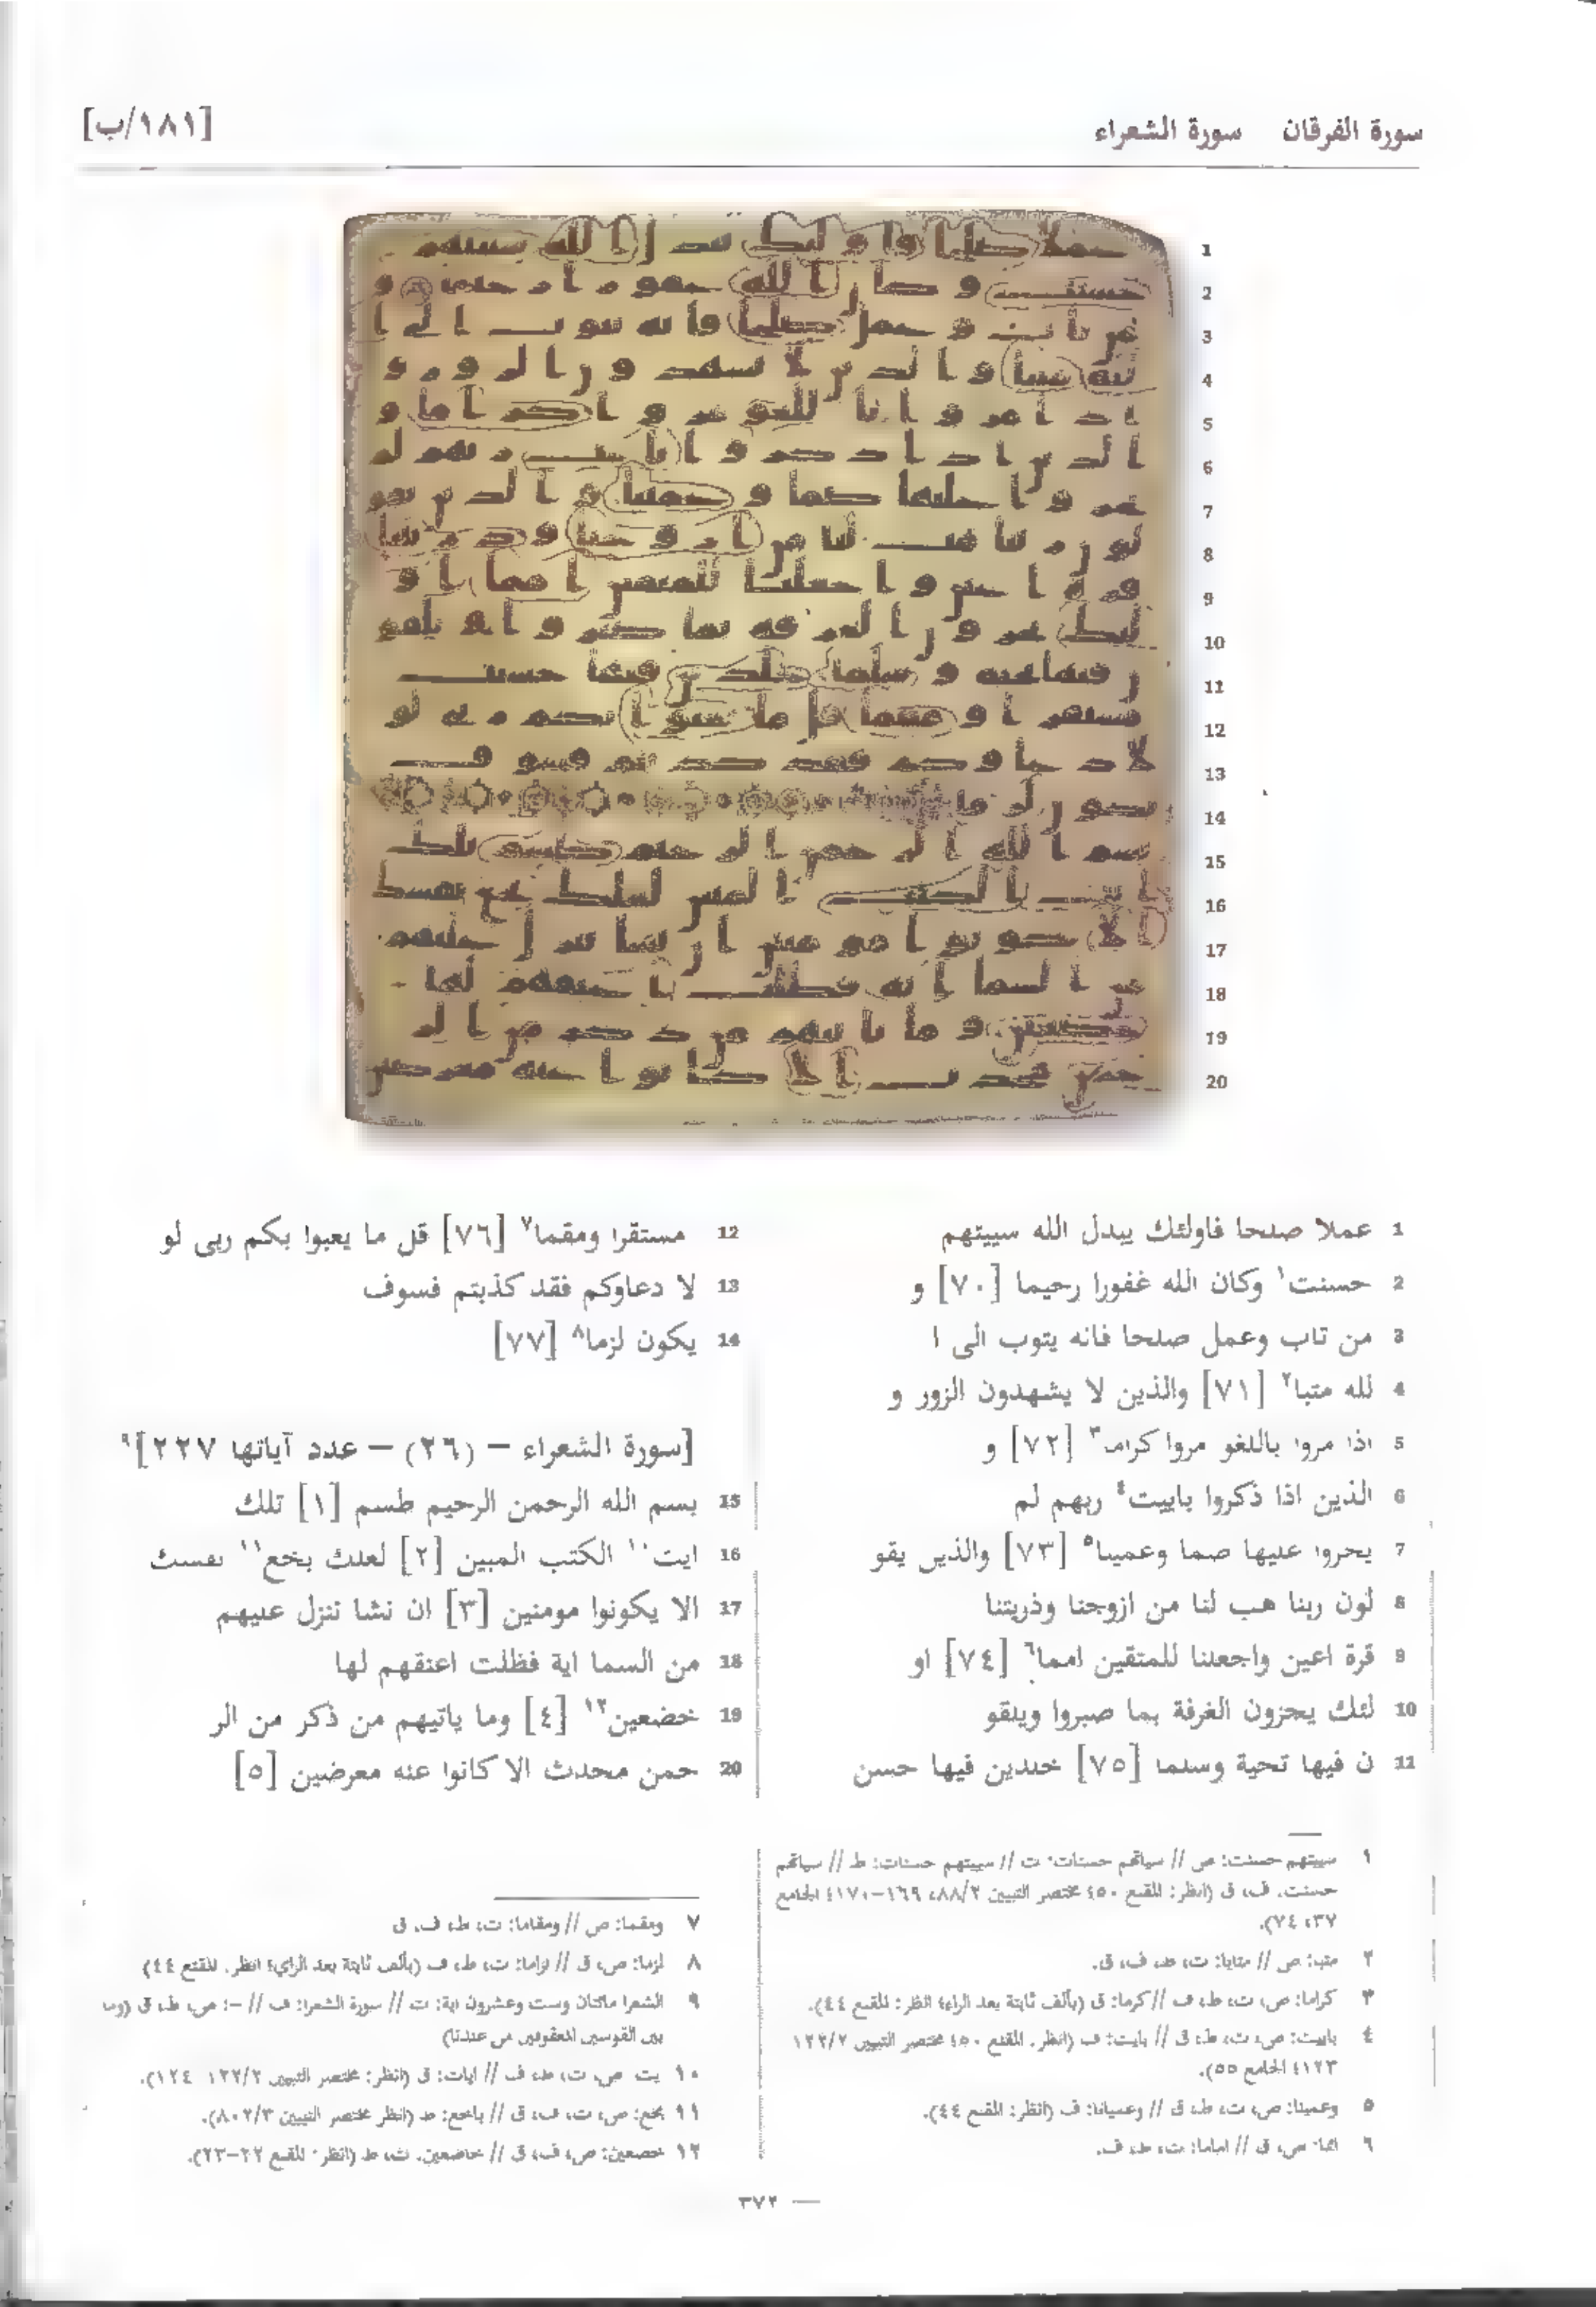 سورة الفرقان سورة الشعراء
[١٨١/ب]
1 عملا صلحا فاولئك يبدل الله سييتهم
2 حسنت١ وكان الله غفورا رحيما [٧٠] و
3 من تاب وعمل صلحا فانه يتوب الى ا
4 لله متبا٢ [٧١] والذين لا يشهدون الزور و
5 اذا مروا باللغو مروا كراما٣ [٧٢] و
6 الذين اذا ذكروا باييت٤ ربهم لم
7 يخروا عليها صما وعمينا٥ [٧٣] والذين يقو
8 لون ربنا هب لنا من ازوجنا وذريتنا
9 قرة اعين واجعلنا للمتقين امما٦ [٧٤] او
10 لئك يجزون الغرفة بما صبروا ويلقو
11 ن فيها تحية وسلما [٧٥] خلدين فيها حسن
12 مستقرا ومقما٧ [٧٦] قل ما يعبوا بكم ربى لو
13 لا دعاوكم فقد كذبتم فسوف
14 يكون لزما٨ [٧٧]
[سورة الشعراء – (٢٦) – عدد آياتها ٢٢٧]٩
15 بسم الله الرحمن الرحيم طسم [١] تلك
16 ايت١٠ الكتب المبين [٢] لعلك بخع١١ نفسك
17 الا يكونوا مومنين [٣] ان نشا ننزل عليهم
18 من السما اية فظلت اعنقهم لها
19 خضعين١٢ [٤] وما ياتيهم من ذكر من الر
20 حمن محدث الا كانوا عنه معرضين [٥]
١ سييتهم حسنت: ص // سياتهم حسنات: ت // سييتهم حسنات: ط // سياتهم
حسنت: ف، ق (انظر: المقنع ٥٠؛ مختصر التبيين ٨٨/٢، ١٦٩-١٧٠؛ الجامع
٣٧، ٧٤).
٢ متبا: ص // متابا: ت، ط، ف، ق.
٣ كراما: ص، ت، ط، ف // كرما: ق (بألف ثابتة بعد الراء؛ انظر: المقنع ٤٤).
٤ باييت: ص، ت، ط، ق // بايت: ف (انظر: المقنع ٥٠؛ مختصر التبيين ١٢٢/٢
١٢٣؛ الجامع ٥٥).
٥ وعمينا: ص، ت، ط، ق // وعميانا: ف (انظر: المقنع ٤٤).
٦ امما: ص، ق // اماما: ت، ط، ف.
٧ ومقما: ص // ومقاما: ت، ط، ف، ق
٨ لزما: ص، ق // لزاما: ت، ط، ف (بألف ثابتة بعد الزاي؛ انظر: المقنع ٤٤)
٩ الشعرا مائتان وست وعشرون اية: ت // سورة الشعرا: ف // –: ص، ط، ق (وما
بين القوسين المعقوفين من عندنا)
١٠ يت ص، ت، ط، ف // ايات: ق (انظر: مختصر التبيين ١٢٢/٢ ١٢٤).
١١ بخع: ص، ت، ف، ق // باخع: ط (انظر مختصر التبيين ٨٠٢/٣).
١٢ خضعين: ص، ف، ق // خاضعين: ت، ط (انظر: المقنع ٢٢-٢٣).
٣٧٢ —